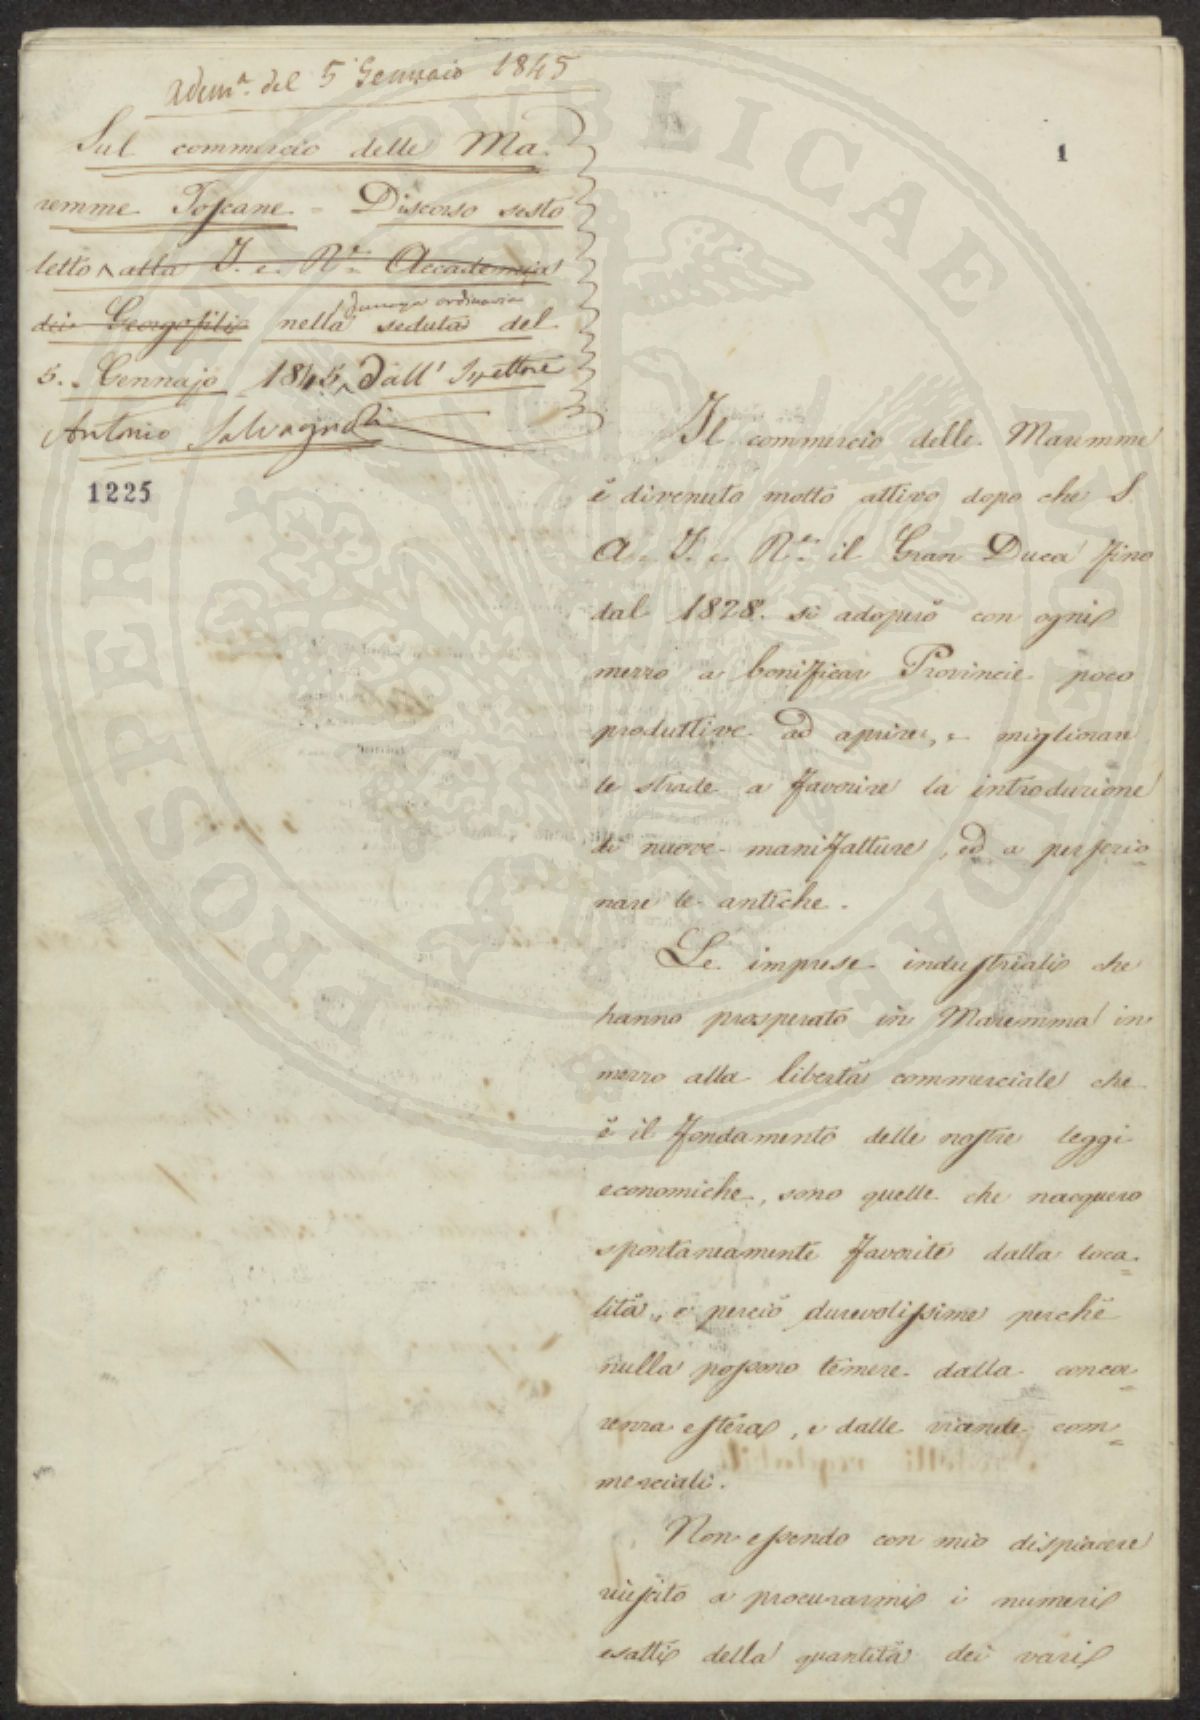 Adun.ª del 5 Gennaio 1845
Sul commercio delle Ma=
remme Toscane = Discorso sesto
letto alla I. e. R.le Accademia
dei Georgofili nella seduta ordinaria del
5. Gennajo 1845 dall'
Antonio Salvagnoli
1225
1
Il commercio delle Maremme
è divenuto molto attivo dopo che S.
A. I. e R.le il Gran Duca fino
dal 1828. si adoperò con ogni
mezzo a bonificar Provincie poco
produttive ad aprire, e migliorare
le strade a favorire la introduzione
di nuove manifatture, ed a perfezio=
nare le antiche.
Le imprese industriali che
hanno prosperato in Maremma in
mezzo alla libertà commerciale che
è il fondamento delle nostre leggi
economiche, sono quelle che nacquero
spontaneamente favorite dalla loca=
lità, e perciò durevolissime perchè
nulla possono temere dalla concor=
renza estera, e dalle vicende com=
merciali.
Non essendo con mio dispiacere
riuscito a procurarmi i numeri
esatti della quantità dei varii
PROSPERITATI PVBLICAE AVGENDAE